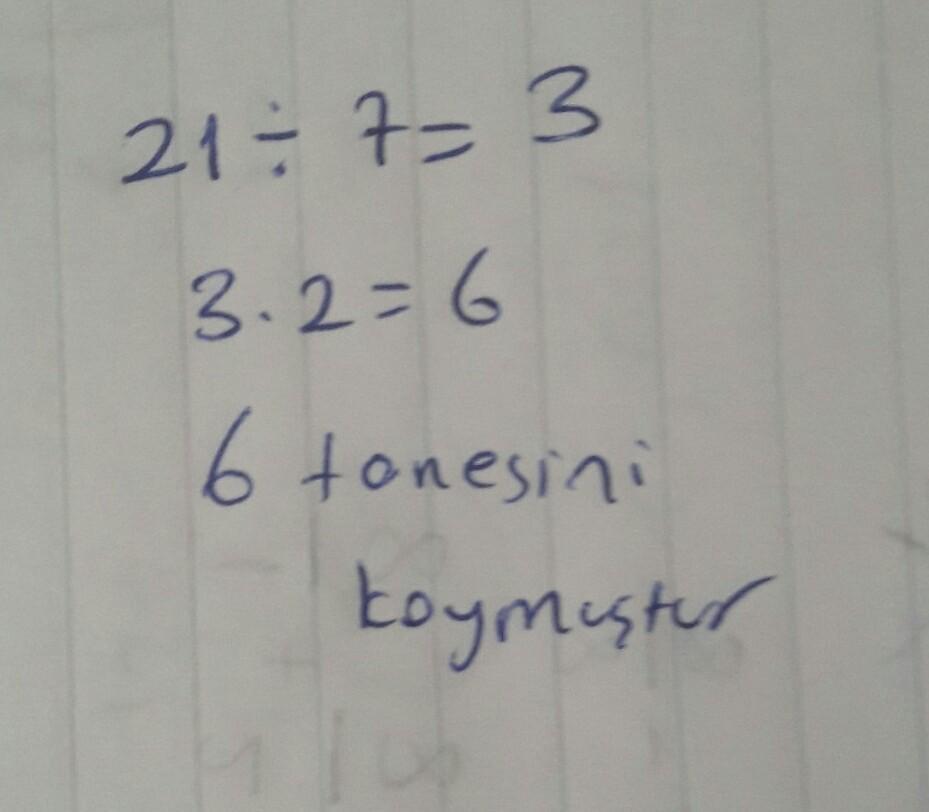 21 ÷ 7 = 3
3 . 2 = 6
6 tanesini
koymuştur